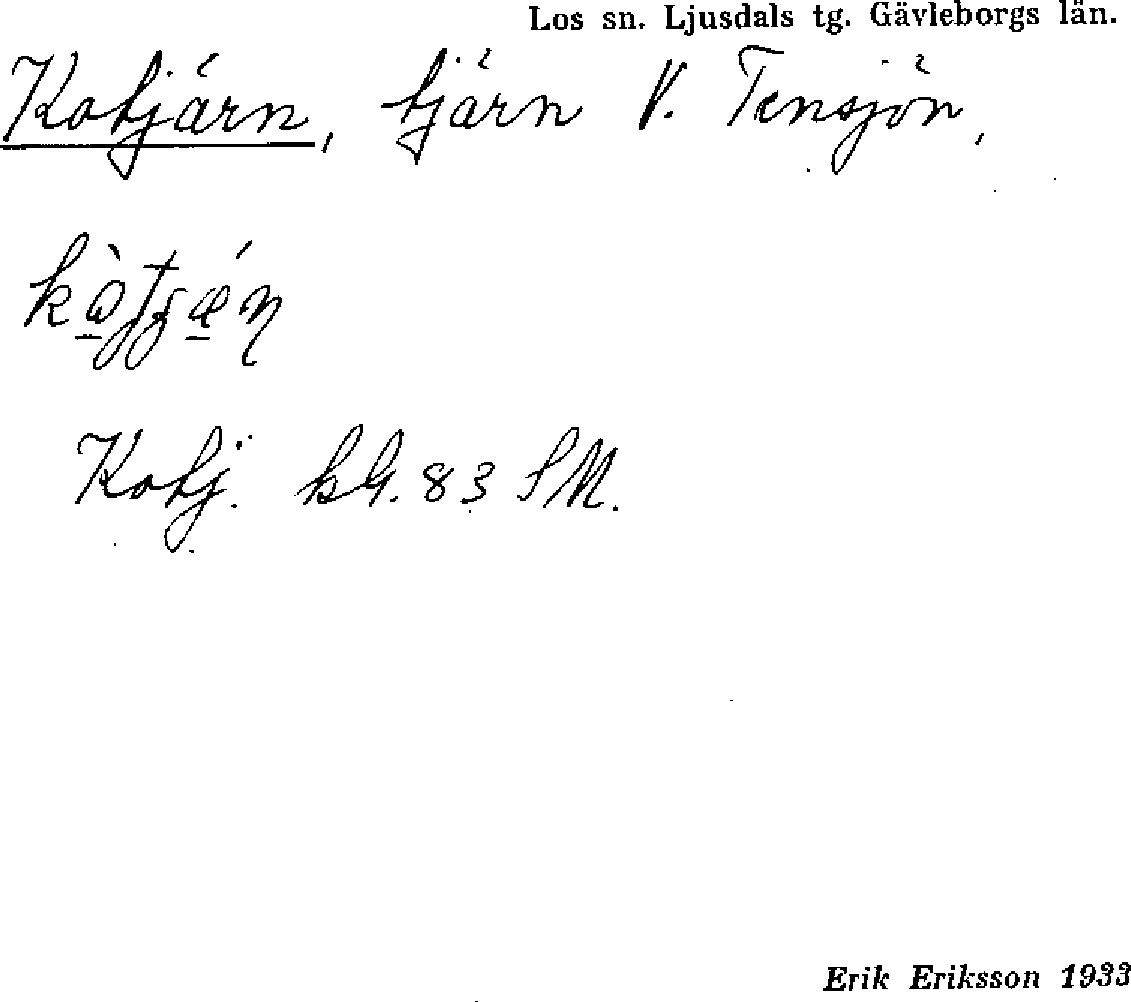 Los sn. Ljusdals tg. Gävleborgs län.
Kotjärn, tjärn V. Tensjön,
Kotj. kbl. 83 SM.
Erik Eriksson 1933